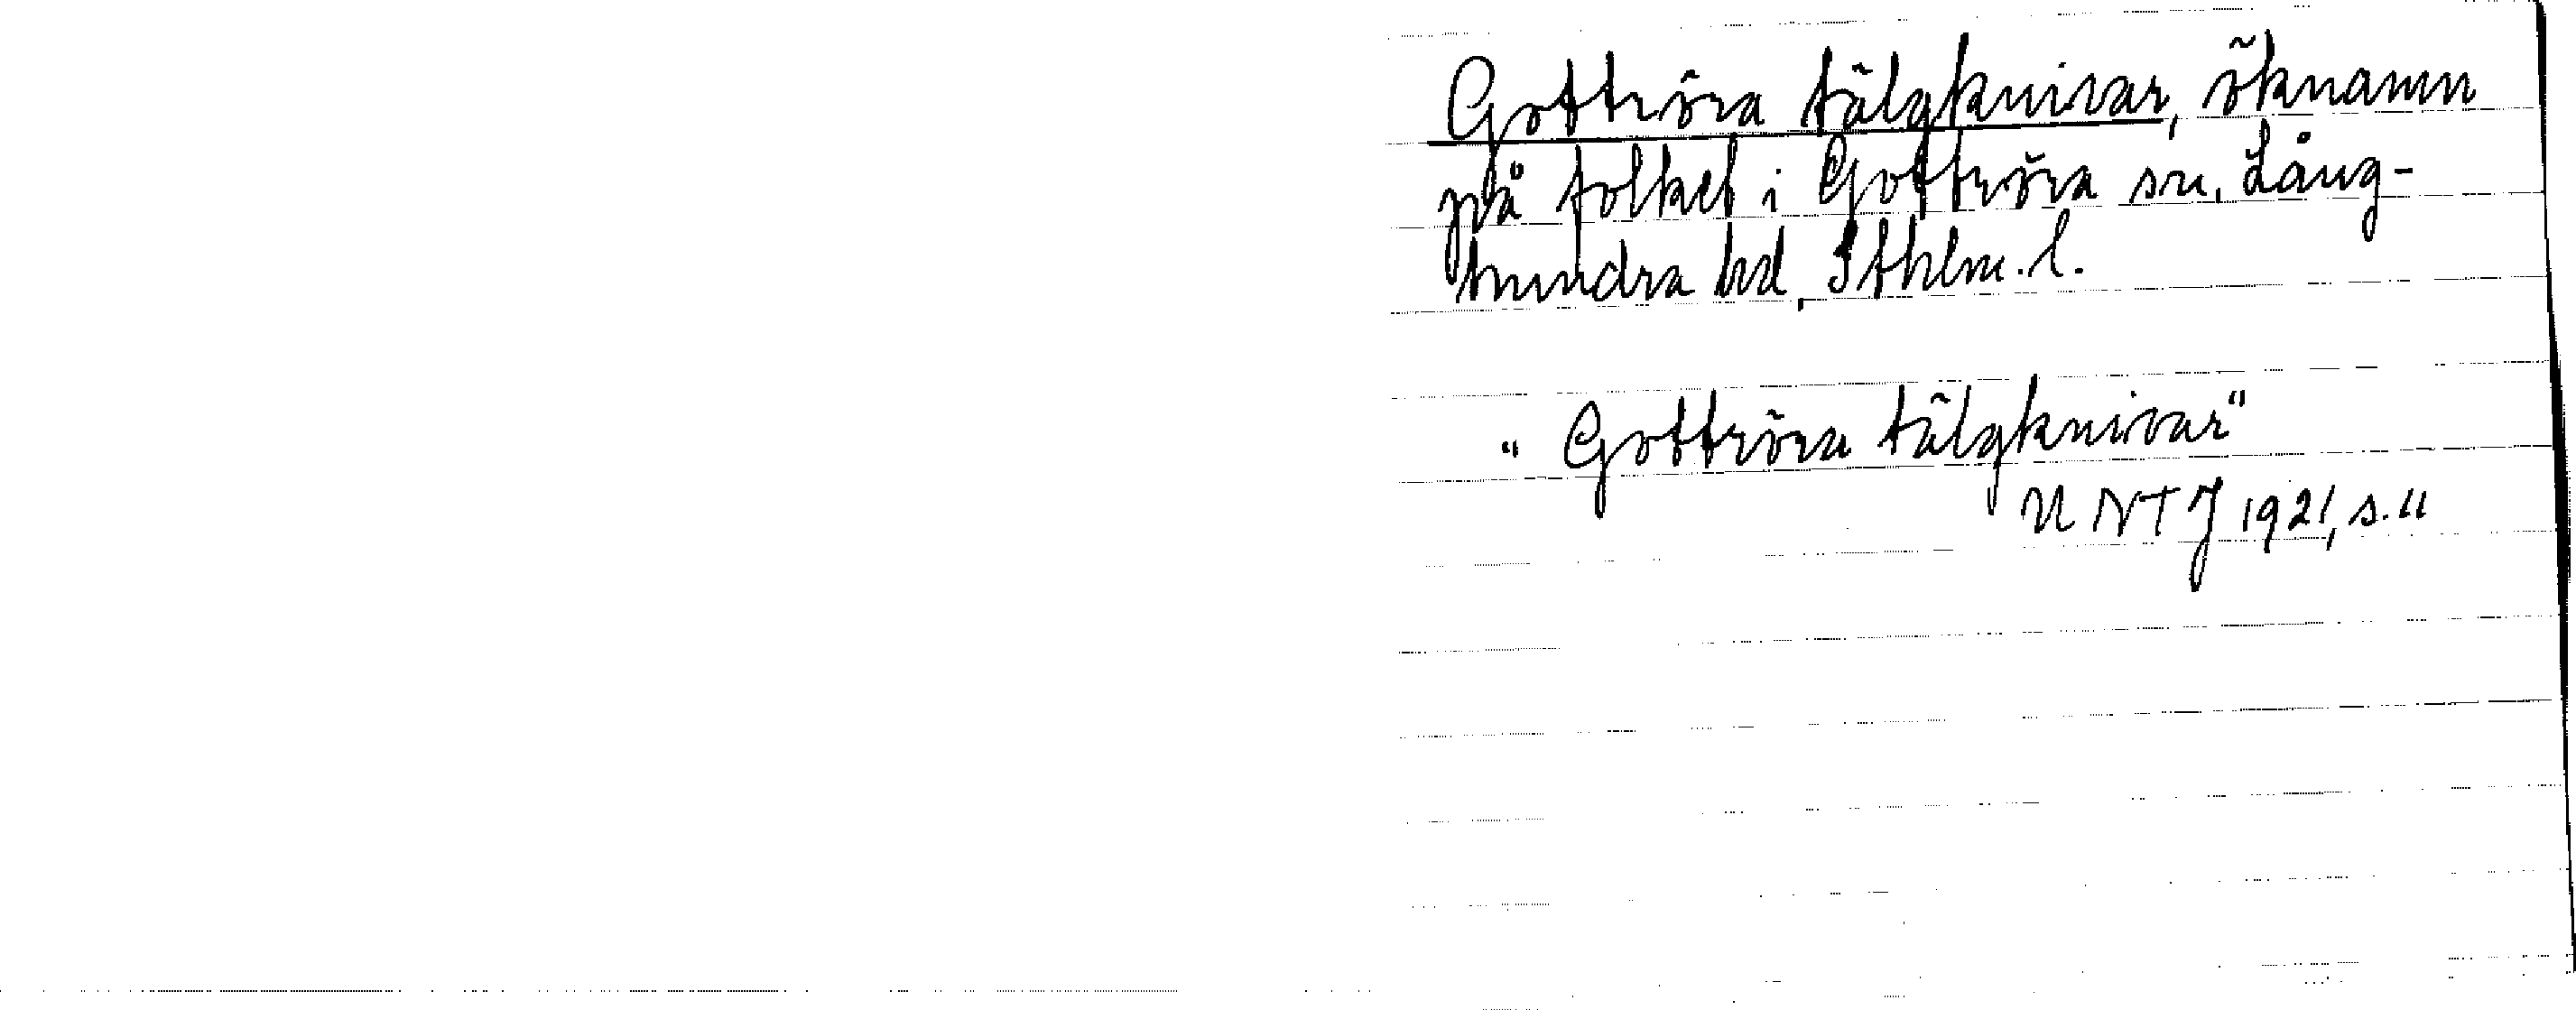 Gottröra tälgknivar, öknamn
på folket i Gottröra sn, Lång-
hundra hd, Sthlm. l.
"Gottröra tälgknivar"
UNTJ 1921, s. 11